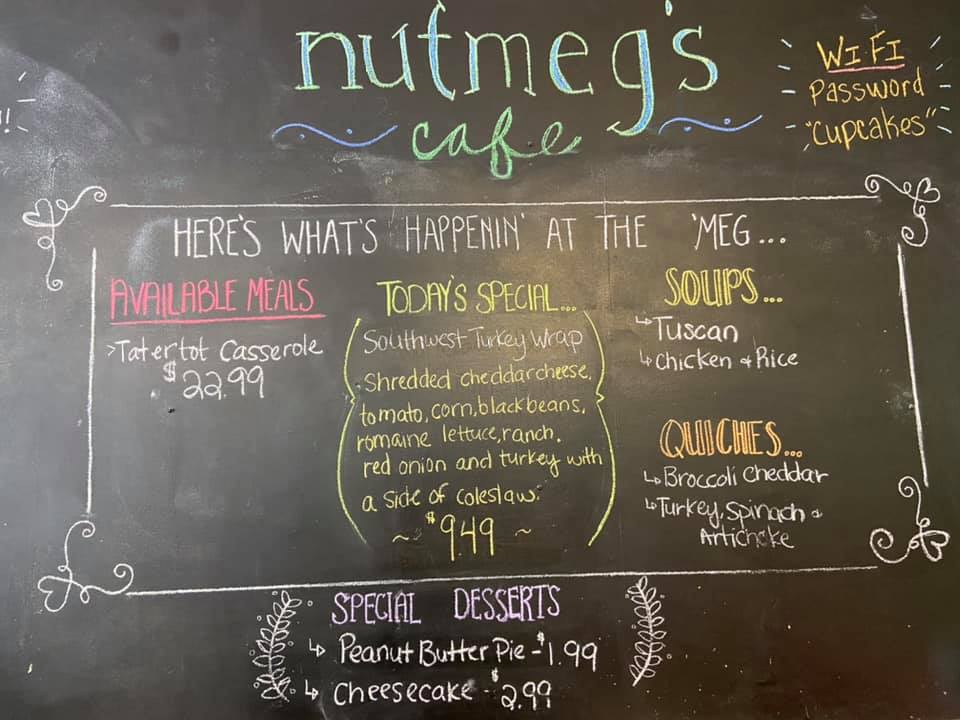 nutmeg's
cafe
WI-FI
Password
"Cupcakes"
!!
HERE'S WHAT'S HAPPENIN' AT THE 'MEG...
AVAILABLE MEALS
>Tatertot Casserole
$22.99
TODAY'S SPECIAL...
Southwest Turkey Wrap
Shredded cheddar cheese,
tomato, corn, black beans,
romaine lettuce, ranch,
red onion and turkey with
a side of coleslaw.
~ $9.49 ~
SOUPS...
↳Tuscan
↳Chicken & Rice
QUICHES...
↳Broccoli Cheddar
↳Turkey, Spinach &
Artichoke
SPECIAL DESSERTS
↳ Peanut Butter Pie - $1.99
↳ Cheesecake - $2.99